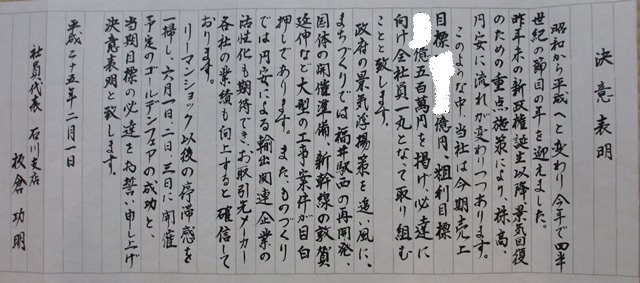 決意表明
昭和から平成へと変わり今年で四半
世紀の節目の年を迎えました。
昨年末の新政権誕生以降、景気回復
のための重点施策により、株高、
円安に流れが変わりつつあります。
このような中、当社は今期売上
目標 億円、粗利目標
億五百萬円を掲げ、必達に
向け全社員一丸となって取り組む
ことと致します。
政府の景気浮揚策を追い風に、
まちづくりでは福井駅西の再開発、
国体の開催準備、新幹線の敦賀
延伸など大型の工事案件が目白
押しであります。また、ものづくり
では円安による輸出関連企業の
活性化も期待でき、お取引先メーカー
各社の業績も向上すると確信して
おります。
リーマンショック以後の停滞感を
一掃し、六月一日、二日、三日に開催
予定のゴールデンフェアの成功と、
当期目標の必達をお誓い申し上げ
決意表明と致します。
平成二十五年二月一日
社員代表 石川支店
板倉功明